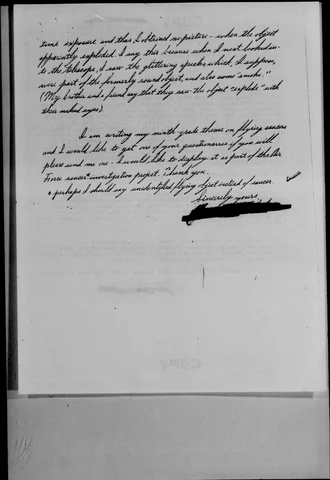 time exposure and thus I obtained no picture - when the object
apparently exploded. I say this because when I next looked in-
to the telescope, I saw the glittering specks which, I suppose,
were part of the formerly round object, and also some smoke."
(My brother and a friend say that they saw the object "explode" with
their naked eyes).
I am writing my ninth-grade theme on flying saucers
and I would like to get one of your questionnaires if you will
please send me one - I would like to display it as part of the Air
Force saucer* investigation project. Thank you.
* perhaps I should say unidentified flying object instead of saucer.
Sincerely yours
COPY